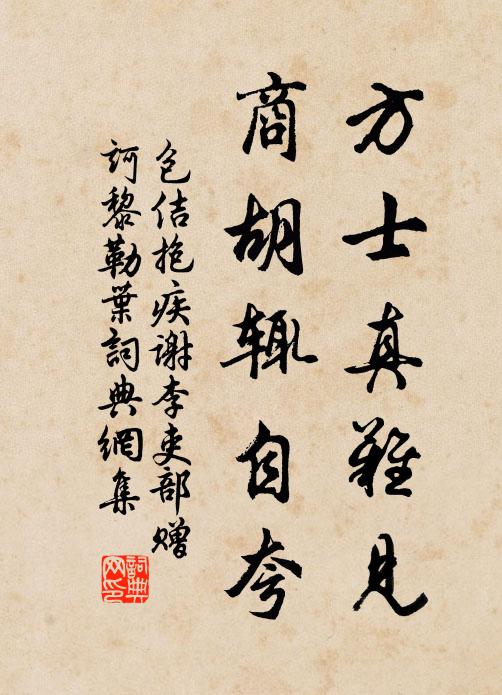 方士真難見
商胡輒自夸
包佶抱疾謝李吏部赠
訶黎勒葉詞典網集
詞典网印